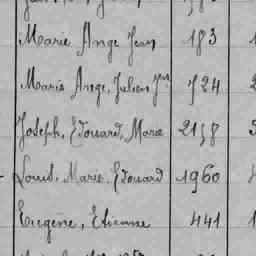 Marie Ange Jean 183
Marie Ange, Julien Jn 724
Joseph, Edouard, Marie 2158
Louis, Marie, Edouard 1960
Eugène, Etienne 441